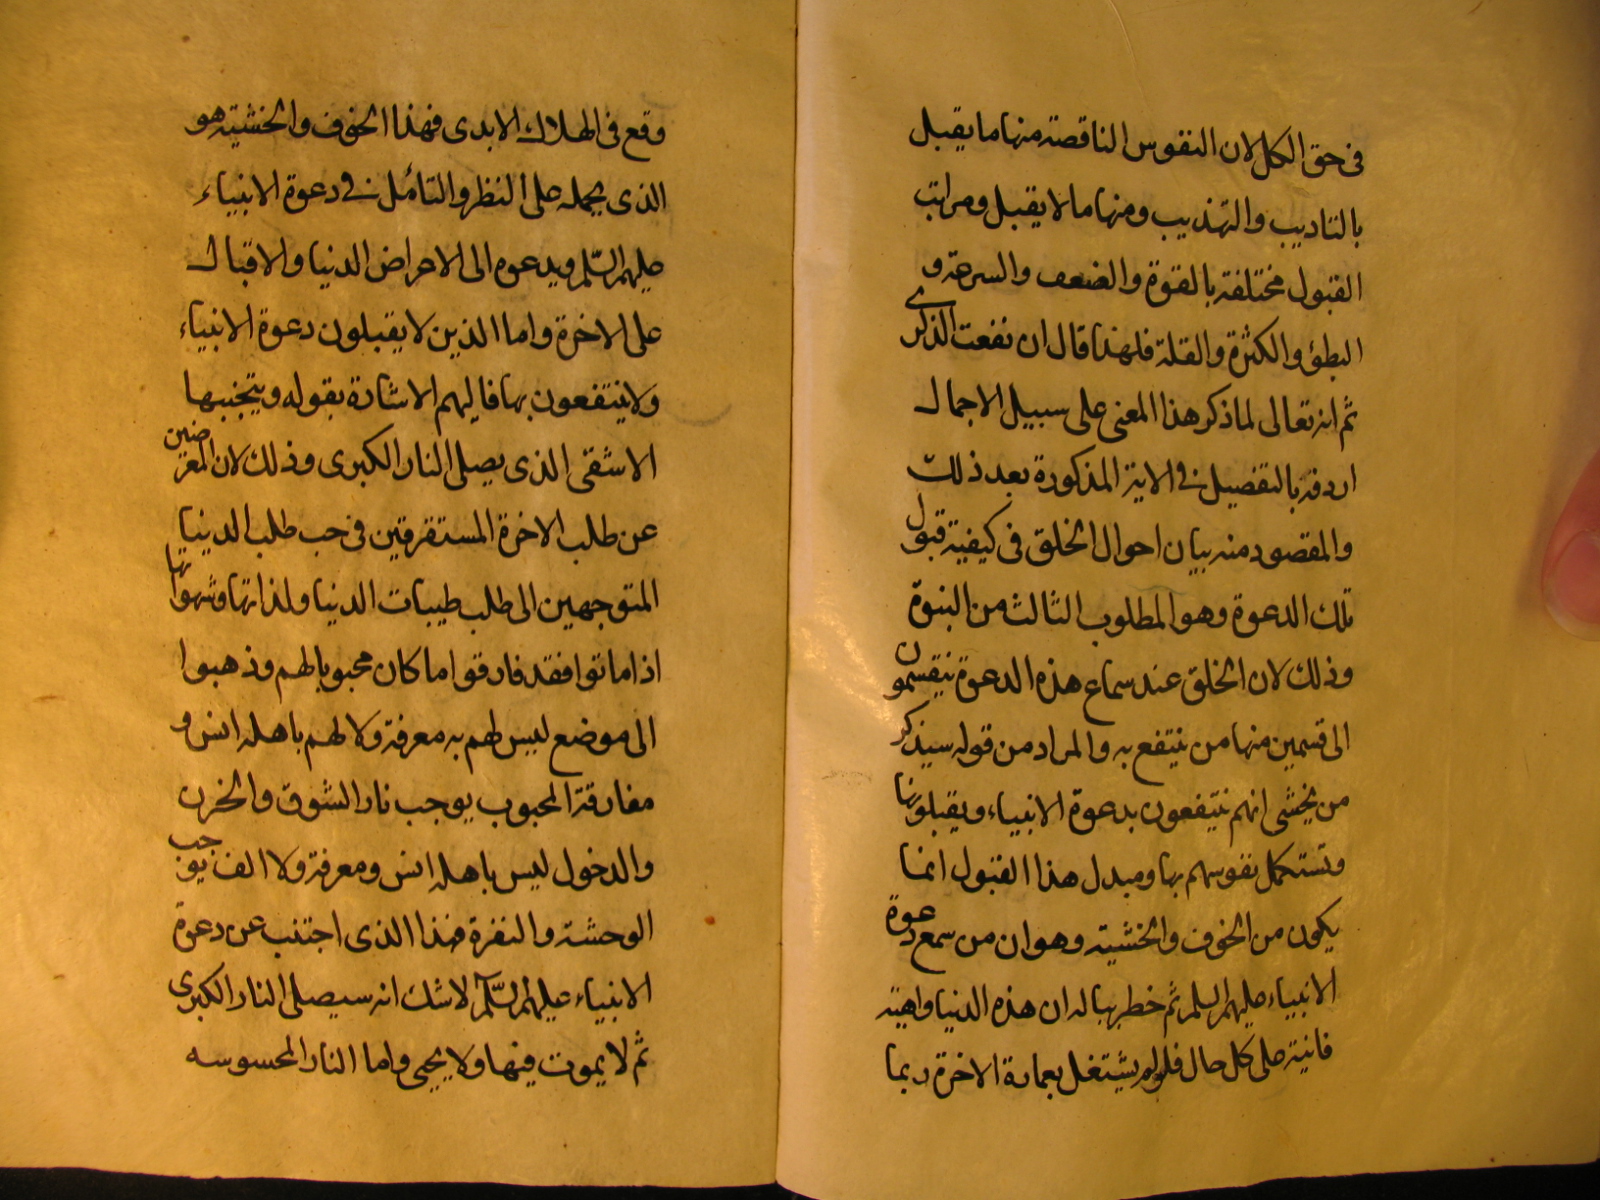 فى حق الكل لان النفوس الناقصة منها ما يقبل
بالتاديب والتهذيب ومنها ما لا يقبل ومراتب
القبول مختلفة بالقوة والضعف والسرعة و
البطؤ والكثرة والقلة فلهذا قال ان نفعت الذكرى
ثم انه تعالى لما ذكر هذا المعنى على سبيل الاجمال
اردفه بالتفصيل فى الاية المذكورة بعد ذلك
والمقصود منه بيان احوال الخلق فى كيفية قبول
تلك الدعوة وهو المطلوب الثالث من النبوة
وذلك لان الخلق عند سماع هذه الدعوة ينقسمون
الى قسمين منها من ينتفع به والمراد من قوله سيذكر
من يخشى انهم ينتفعون بدعوة الانبياء ويقبلونها
وتستكمل نفوسهم بها ومبدل هذا القبول انما
يكون من الخوف والخشية وهو ان من سمع دعوة
الانبياء عليهم السلم ثم خطر بباله ان هذه الدنيا واهية
فانية على كل حال فلو لم يشتغل بعمارة الاخرة ربما
وقع فى الهلاك الابدى فهذا الخوف والخشية هو
الذى يحمله على النظر والتأمل فى دعوة الانبياء
عليهم السلم ويدعوه الى الاعراض الدنيا والاقبال
على الاخرة واما الذين لا يقبلون دعوة الانبياء
ولا ينتفعون بها فاليهم الاشارة بقوله ويتجنبها
الاشقى الذى يصلى النار الكبرى وذلك لان المعرضين
عن طلب الاخرة المستقرقين فى حب طلب الدنيا
المتوجهين الى طلب طيبات الدنيا ولذاتها وشهواتها
اذا ماتوا فقد فارقوا ما كان محبوبا لهم وذهبوا
الى موضع ليس لهم به معرفة ولا لهم باهله انس و
مفارقة المحبوب يوجب نار الشوق والحزن
والدخول ليس باهله انس ومعرفة ولا الف يوجب
الوحشة والنفرة فهذا الذى اجتنب عن دعوة
الانبياء عليهم السّلم لا شك انه سيصلى النار الكبرى
ثم لا يموت فيها ولا يحيى واما النار المحسوسه